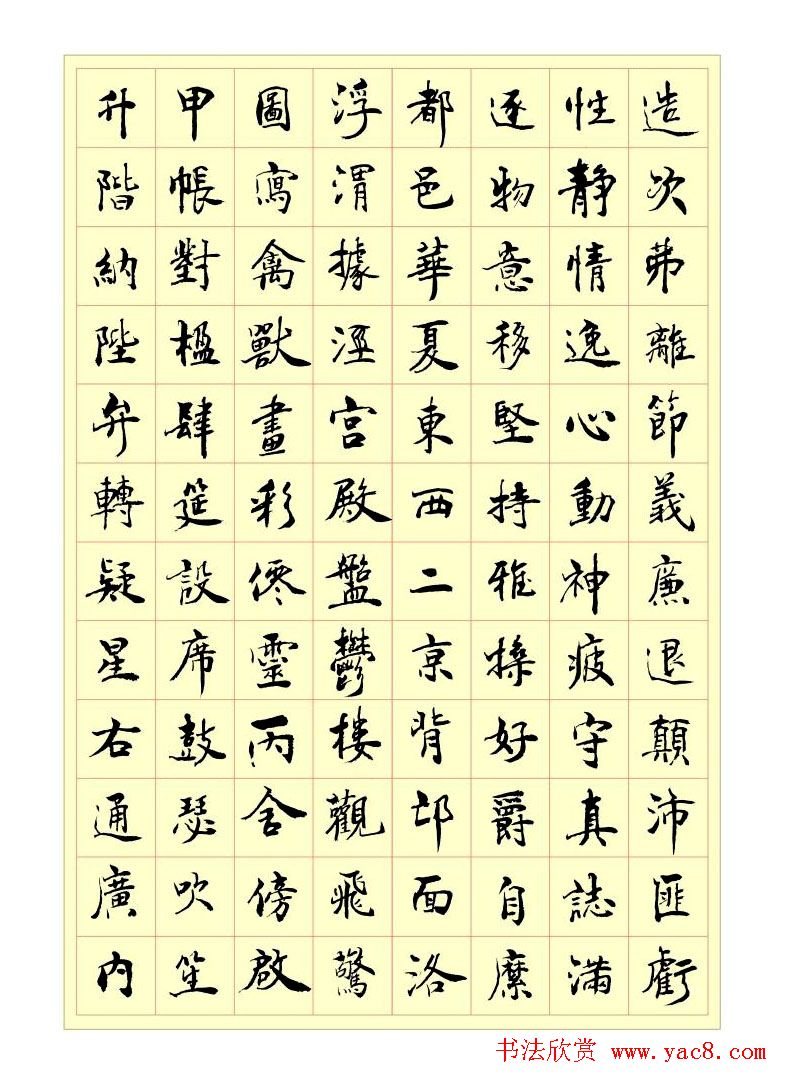 造次弗離節義廉退顛沛匪虧
性静情逸心動神疲守真誌滿
逐物意移堅持雅操好爵自縻
都邑華夏東西二京背邙面洛
浮渭據涇宮殿盤鬱楼觀飛驚
圖寫禽獸畫彩僊靈丙舍傍啟
甲帳對楹肆筵設席鼓瑟吹笙
升階納陛弁轉疑星右通廣内
书法欣赏 www.yac8.com